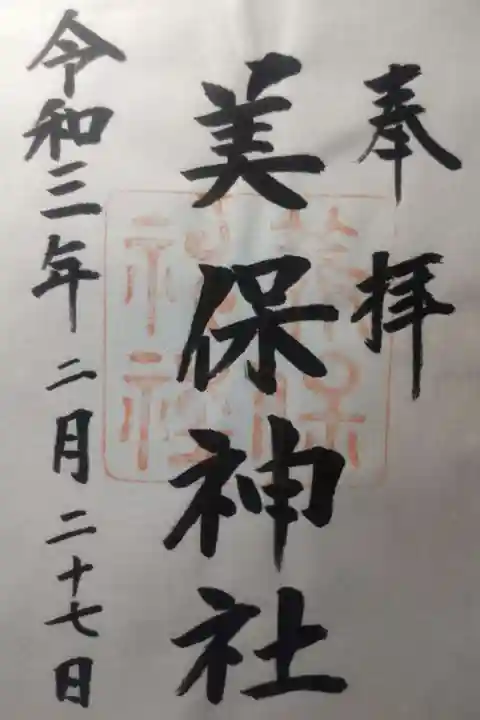 奉拝
美保神社
令和三年二月二十七日
美保
神社